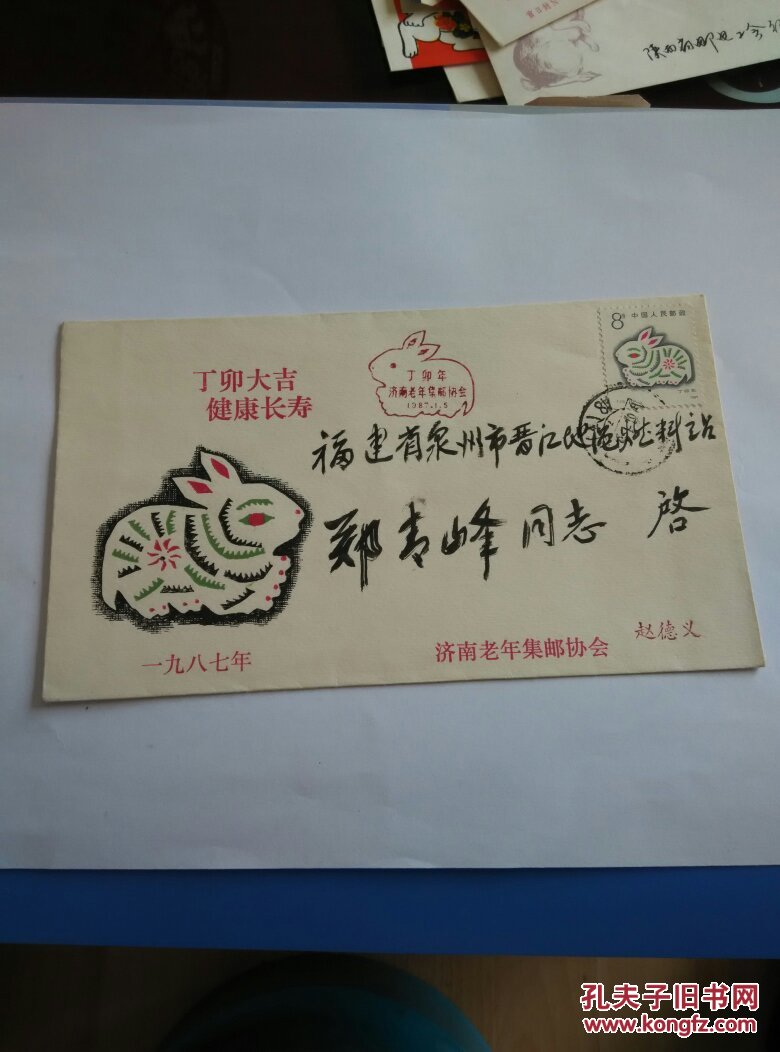 陕西省邮电
8分 中国人民邮政
丁卯大吉
健康长寿
丁卯年
济南老年集邮协会
1987.1.5
福建省泉州市晋江地区燃料站
郑青峰同志 启
一九八七年
济南老年集邮协会 赵德义
孔夫子旧书网
www.kongfz.com